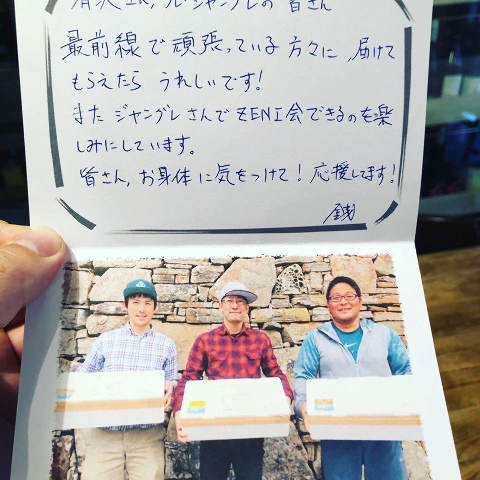 最前線で頑張っている方々に、届けて
もらえたら うれしいです!
また ジャングレさんでZENI会できるのを楽
しみにしています。
皆さん、お身体に気をつけて! 応援してます!
銭